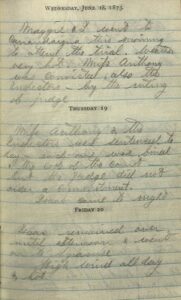 WEDNESDAY, JUNE 18, 1873.
Maggie & I went to
Canandaigua this morning
to attend the trial. weather
very hot. Miss Anthony
was convicted, also the
Inspectors - by the ruling
of judge
THURSDAY 19
Miss Anthony & the
Inspectors were sentenced to
pay each one
& the costs of the
but the judge did not
order a commitment.
came to night
FRIDAY 20
remained over
until afternoon & went
on to Syracuse
High wind all day
& hot